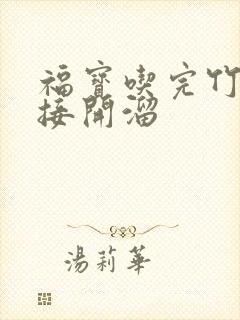 福寶喫完竹
接開溜
湯莉華